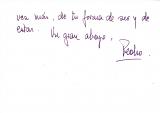 vez más, de tu forma de ser y de
estar.
Un gran abrazo,
Pedro.